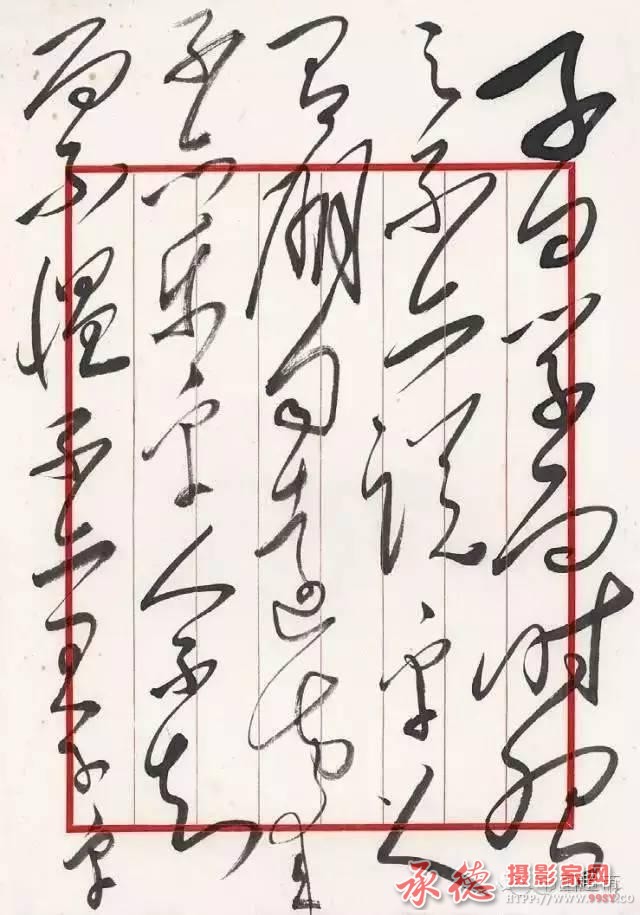 子曰学而时習
之不亦说乎
有朋自遠方来
不亦乐乎人不知
而不愠不亦君子乎
承德摄影家网
HTTP://WWW.99SY